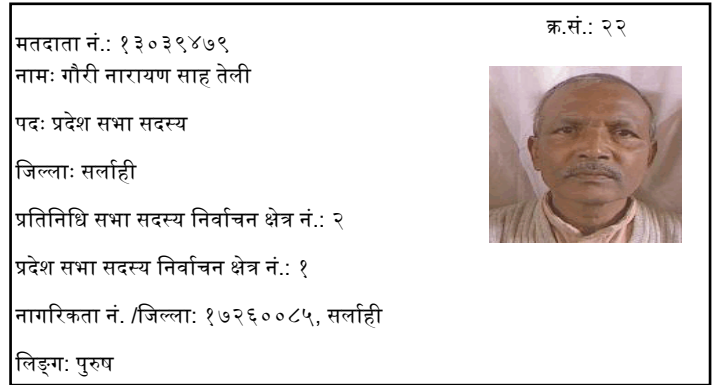 क्र.सं.: २२
मतदाता नं.: १३०३९४७९
नामः गौरी नारायण साह तेली
पदः प्रदेश सभा सदस्य
जिल्लाः सर्लाही
प्रतिनिधि सभा सदस्य निर्वाचन क्षेत्र नं.: २
प्रदेश सभा सदस्य निर्वाचन क्षेत्र नं.: १
नागरिकता नं. /जिल्ला: १७२६००८५, सर्लाही
लिङ्ग: पुरुष